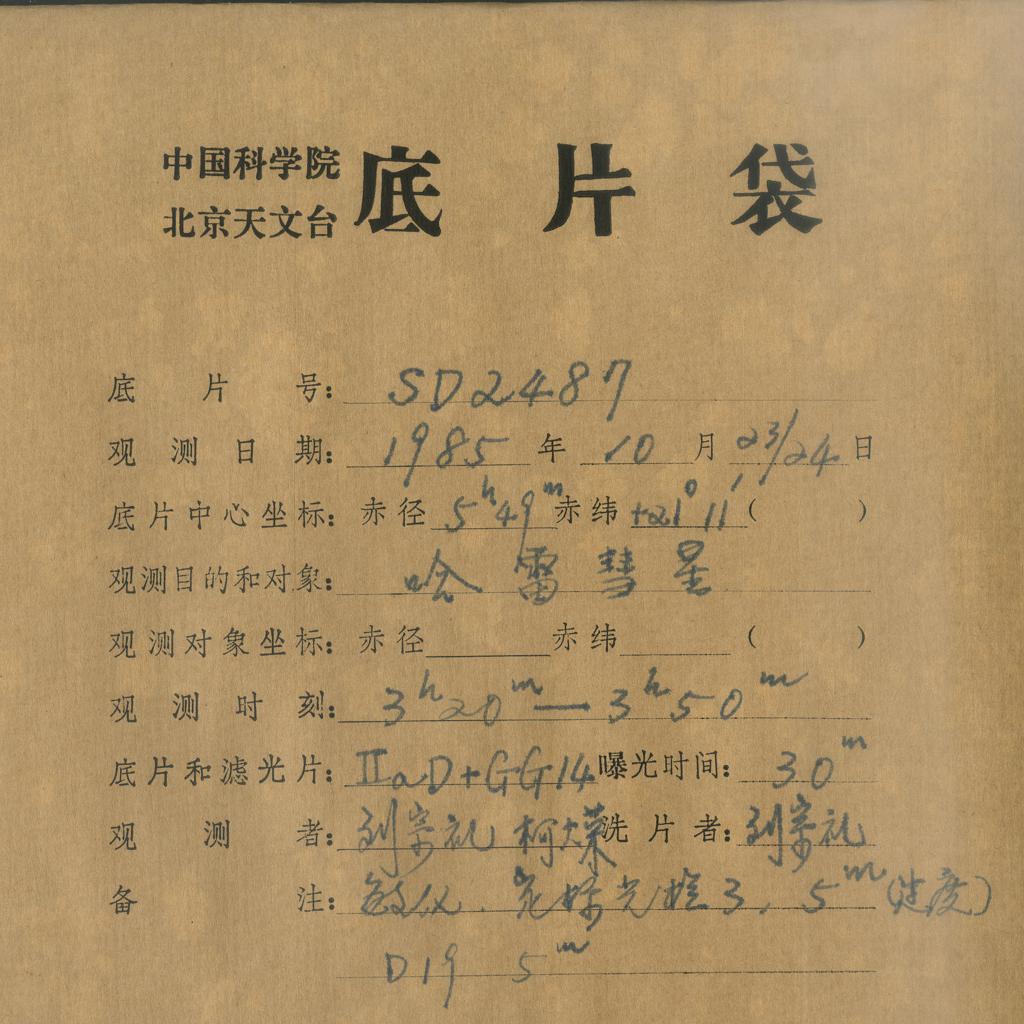 中国科学院
北京天文台
底片袋
底片号：SD2487
观测日期：1985年10月23/24日
底片中心坐标：赤径5h49m赤纬+21°11′（ ）
观测目的和对象：哈雷彗星
观测对象坐标：赤径 赤纬 （ ）
观测时刻：3h20m—3h50m
底片和滤光片：IIaD+GG14 曝光时间：30m
观测者：刘宗礼 柯大荣 洗片者：刘宗礼
备注：敏仪. 光楼3, 5m
D19 5m